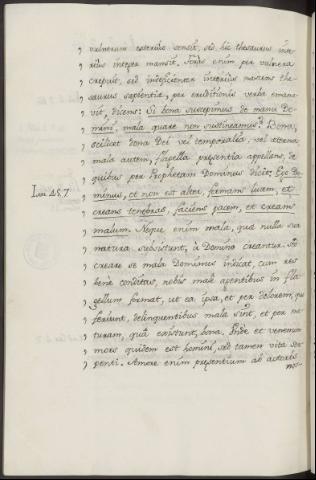 , vulnerum exterius sensit, sed hic thesaurus inte-
, rius integer mansit. Foris enim per vulnera
, crepuit, sed indeficienter interius nascens the-
, saurus sapientiæ, per eruditionis verba emana-
, vit, dicens: Si bona suscepimus de manu Do-
, mini, mala quare non sustineamus? Bona,
, scilicet dona Dei vel temporalia, vel æterna
, mala autem, flagella præsentia appellans, de
, quibus per Prophetam Dominus dicit; Ego Do-
Isai. 45. 7. , minus, et non est alter, formans lucem, et
, creans tenebras, faciens pacem, et creans
, malum. Neque enim mala, quæ nulla sua
, natura subsistunt, à Domino creantur. Se
, creare se mala Dominus indicat, cum res
, benè conditas, nobis malè agentibus in fla-
, gellum format, ut ea ipsa, et per dolorem, quo
, feriunt, delinquentibus mala sint, et per na-
, turam, quâ existunt, bona. Unde et venenum
, mors quidem est homini, sed tamen vita ser-
, penti. Amore enim præsentium ab auctoris
nos-